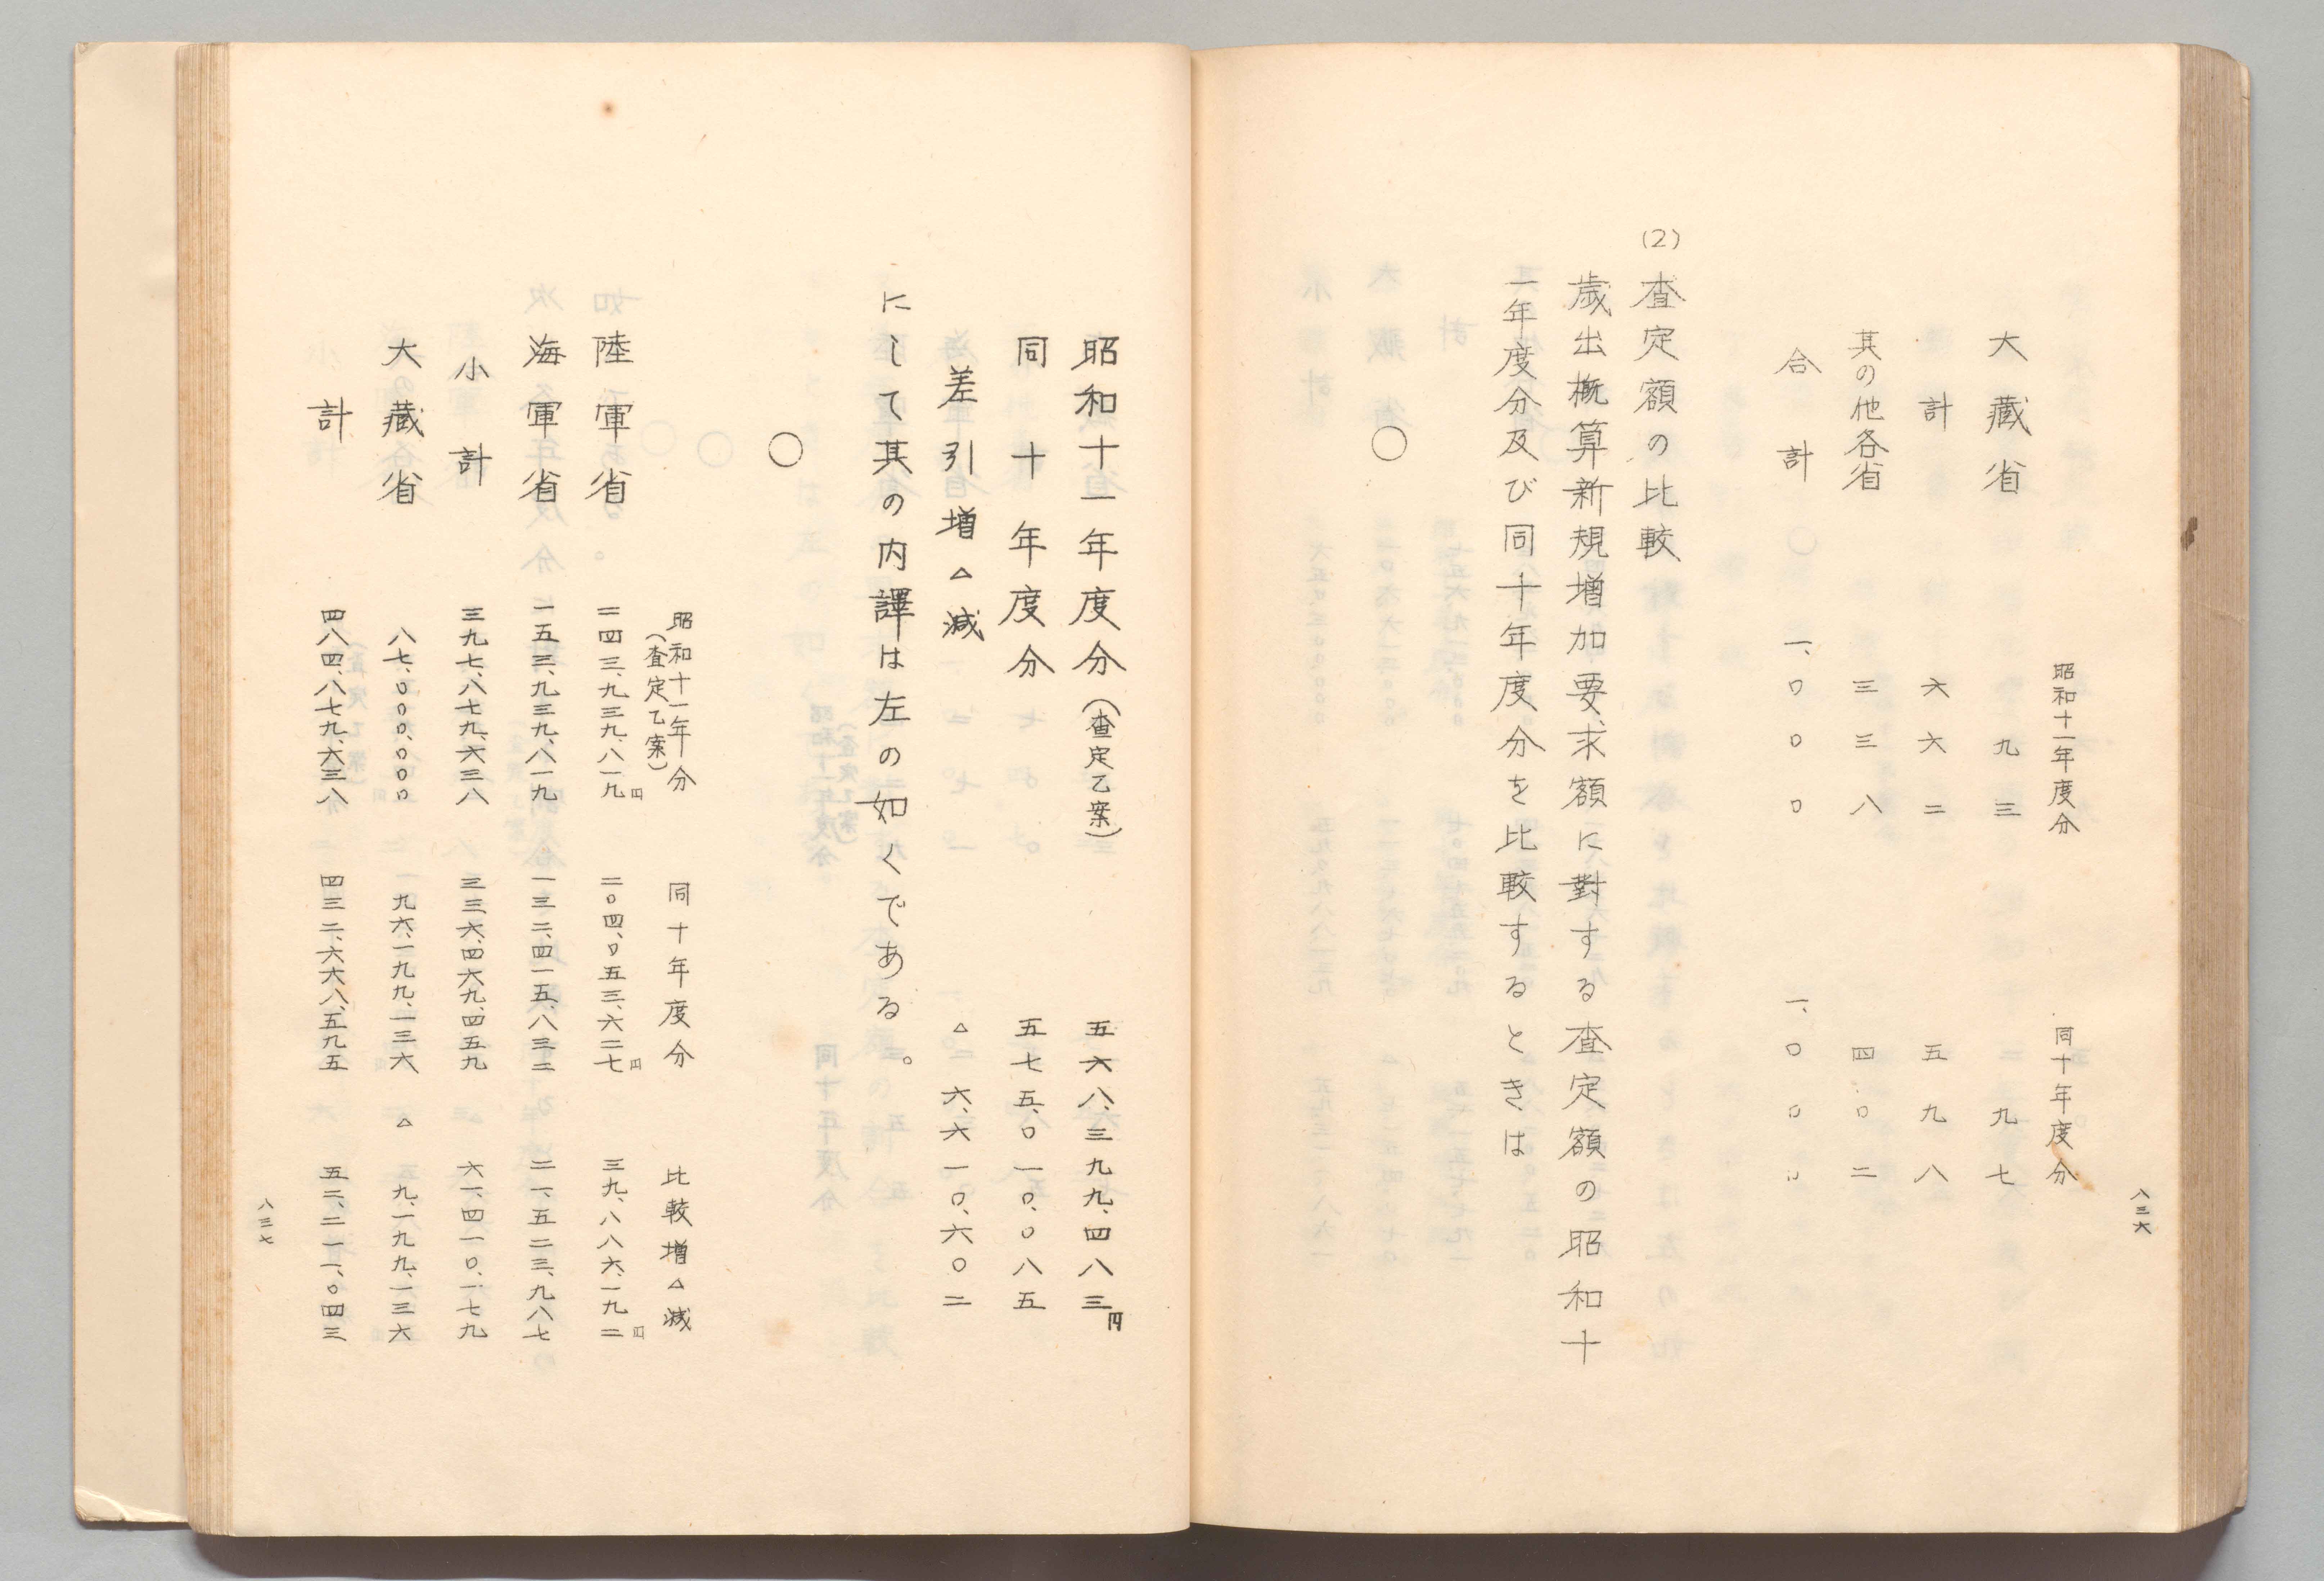 八三六
昭和十一年度分 同十年度分
大藏省 九三 九七
計 六六二 五九八
其の他各省 三三八 四〇二
合計 一、〇〇〇 一、〇〇〇
(2)査定額の比較
歳出概算新規増加要求額に對する査定額の昭和十
一年度分及び同十年度分を比較するときは
昭和十一年度分(査定乙案) 五六八、三九九、四八三円
同十年度分 五七五、〇一〇、〇八五
差引増△減 △六、六一〇、六〇二
にして其の内譯は左の如くである。
昭和十一年分(査定乙案) 同十年度分 比較増△減
陸軍省 二四三、九三九、八一九円 二〇四、〇五三、六二七円 三九、八八六、一九二円
海軍省 一五三、九三九、八一九 一三二、四一五、八三二 二一、五二三、九八七
小計 三九七、八七九、六三八 三三六、四六九、四五九 六一、四一〇、一七九
大藏省 八七、〇〇〇、〇〇〇 九六、一九九、一三六 △九、一九九、一三六
計 四八四、八七九、六三八 四三二、六六八、五九五 五二、二一一、〇四三
八三七